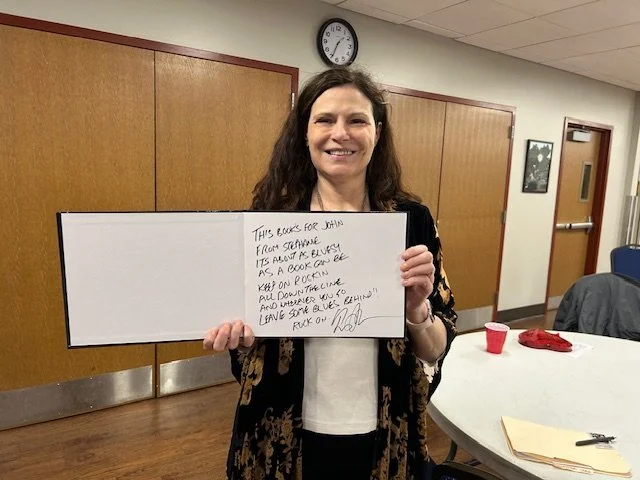 THIS BOOK'S FOR JOHN
FROM STEPHANIE
ITS ABOUT AS BLUESY
AS A BOOK CAN BE
KEEP ON ROCKIN
ALL DOWN THE LINE
AND WHEREVER YOU GO
LEAVE SOME BLUES BEHIND!!
ROCK ON